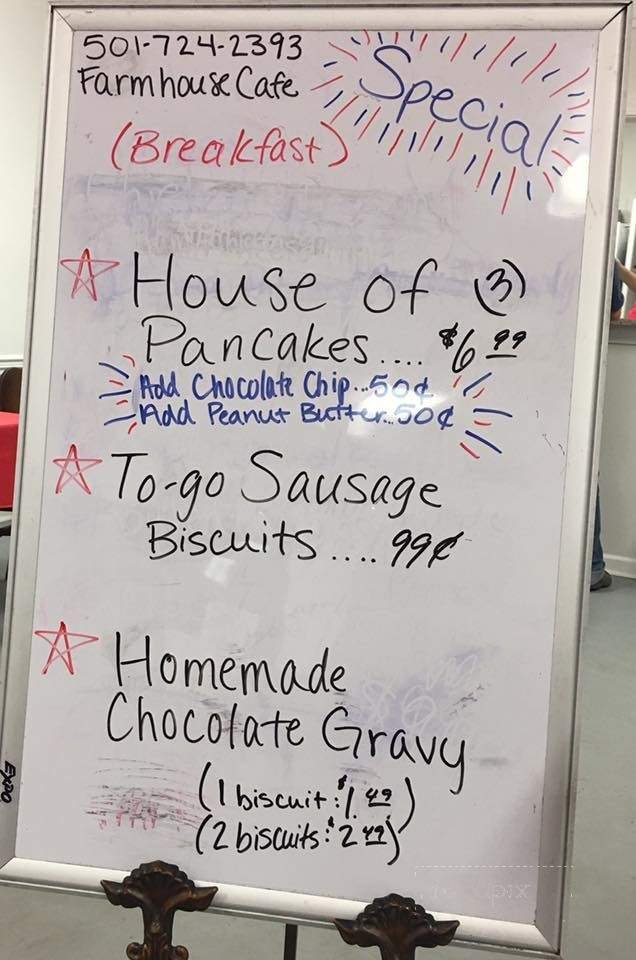 501-724-2393
Farmhouse Cafe
Special
(Breakfast)
House of (3)
Pancakes.... $6.99
Add Chocolate Chip...50¢
Add Peanut Butter...50¢
To-go Sausage
Biscuits.... 99¢
Homemade
Chocolate Gravy
(1 biscuit: $1.49)
(2 biscuits: $2.49)
EXPO